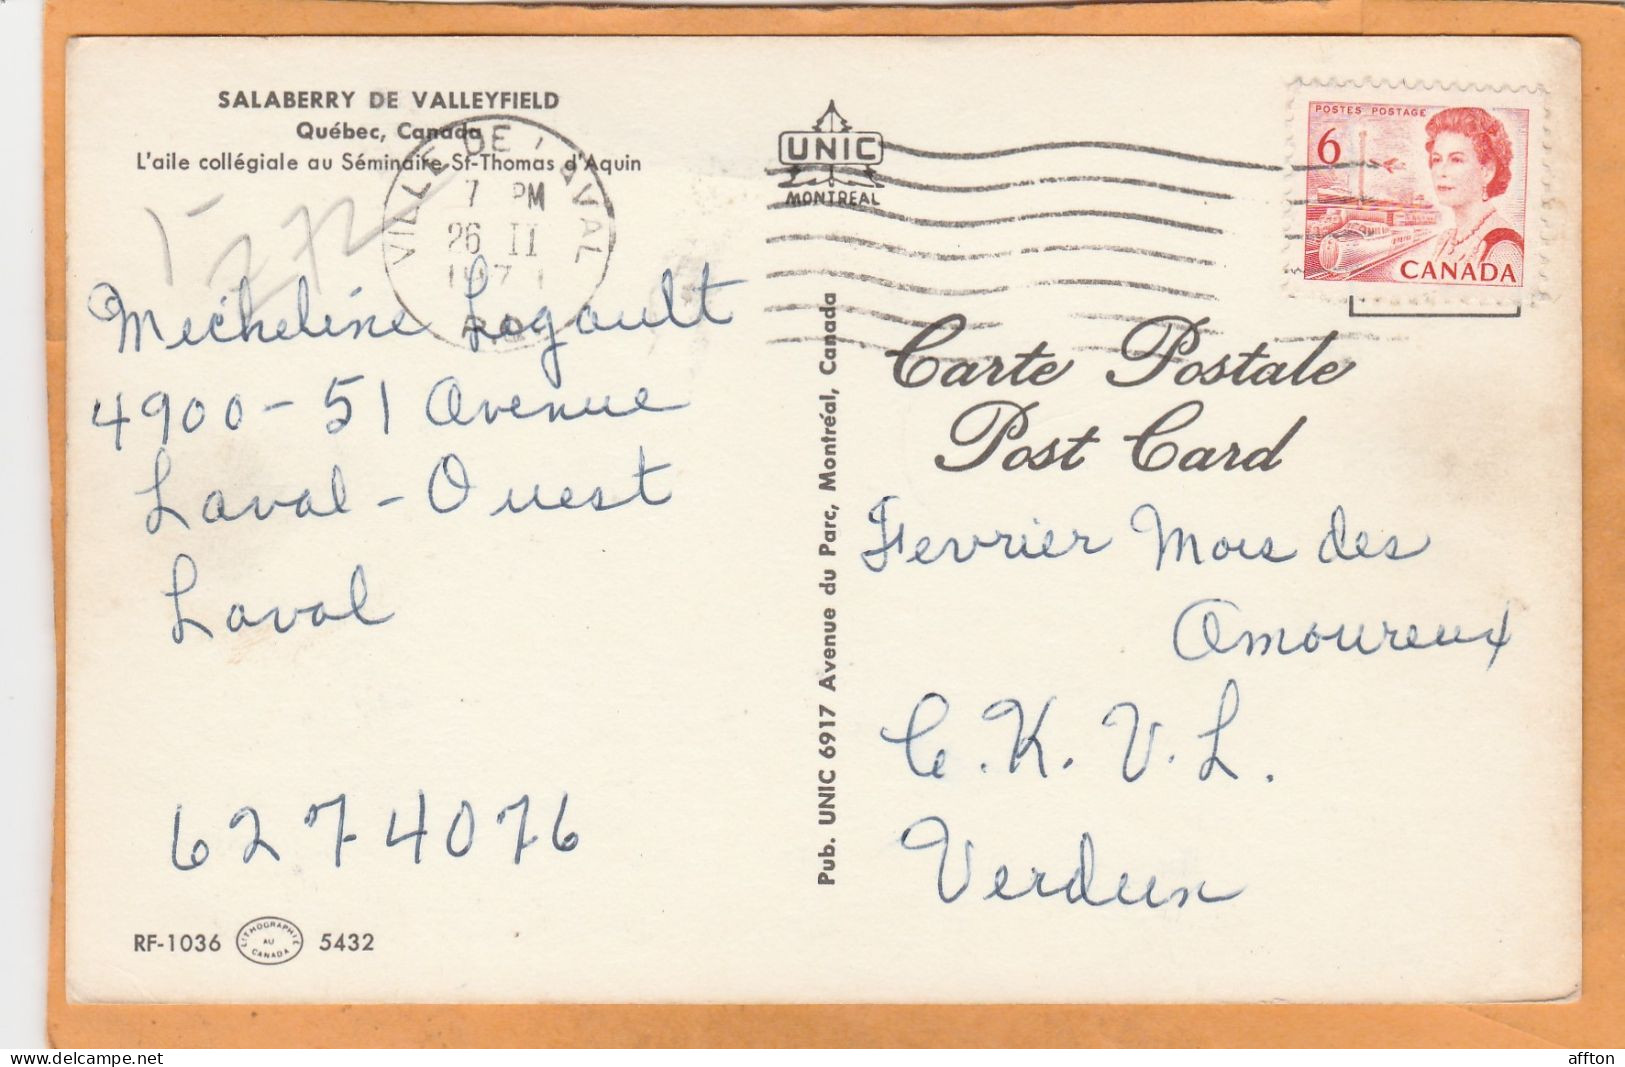 SALABERRY DE VALLEYFIELD
Québec, Canada
L'aile collégiale au Séminaire St-Thomas d'Aquin
VILLE DE LAVAL
7 PM
26 II
UNIC
MONTREAL
POSTES POSTAGE
6
CANADA
Micheline Legault
4900-51 Avenue
Laval-Ouest
Laval
6274076
RF-1036
LITHOGRAPHIE AU CANADA
5432
Pub. UNIC 6917 Avenue du Parc, Montréal, Canada
Carte Postale
Post Card
Fevrier Mois des
Amoureux
C.K.V.L.
Verdun
delcampe.net
affton